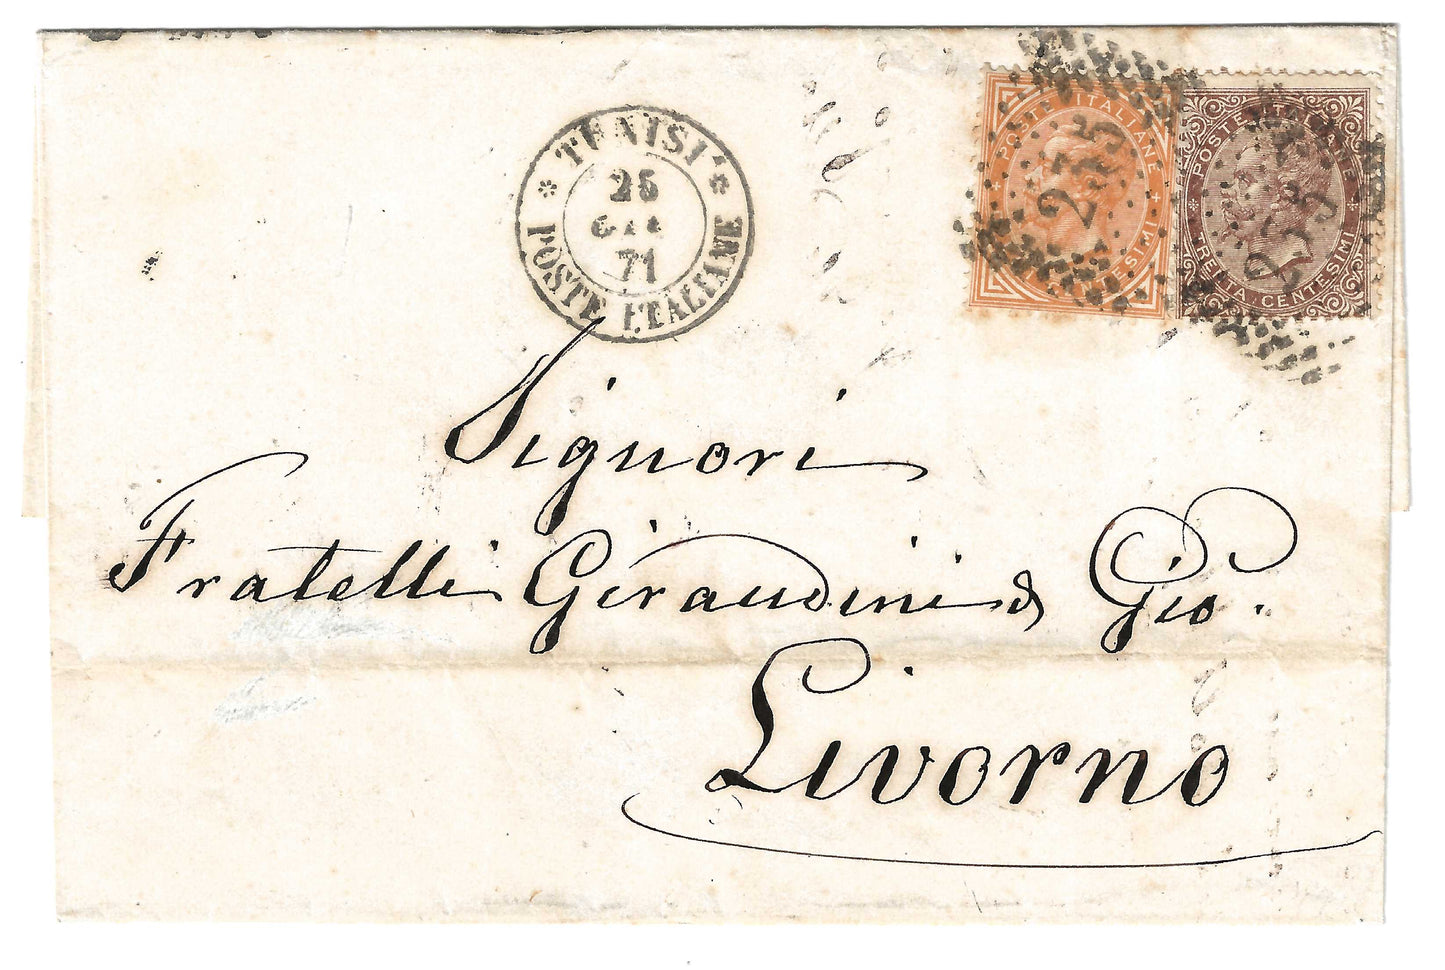 TUNISI
25
71
POSTE ITALIANE
POSTE ITALIANE
CENTESIMI
235
POSTE ITALIANE
TRENTA CENTESIMI
235
Signori
Fratelli Giraudini & Gio.
Livorno